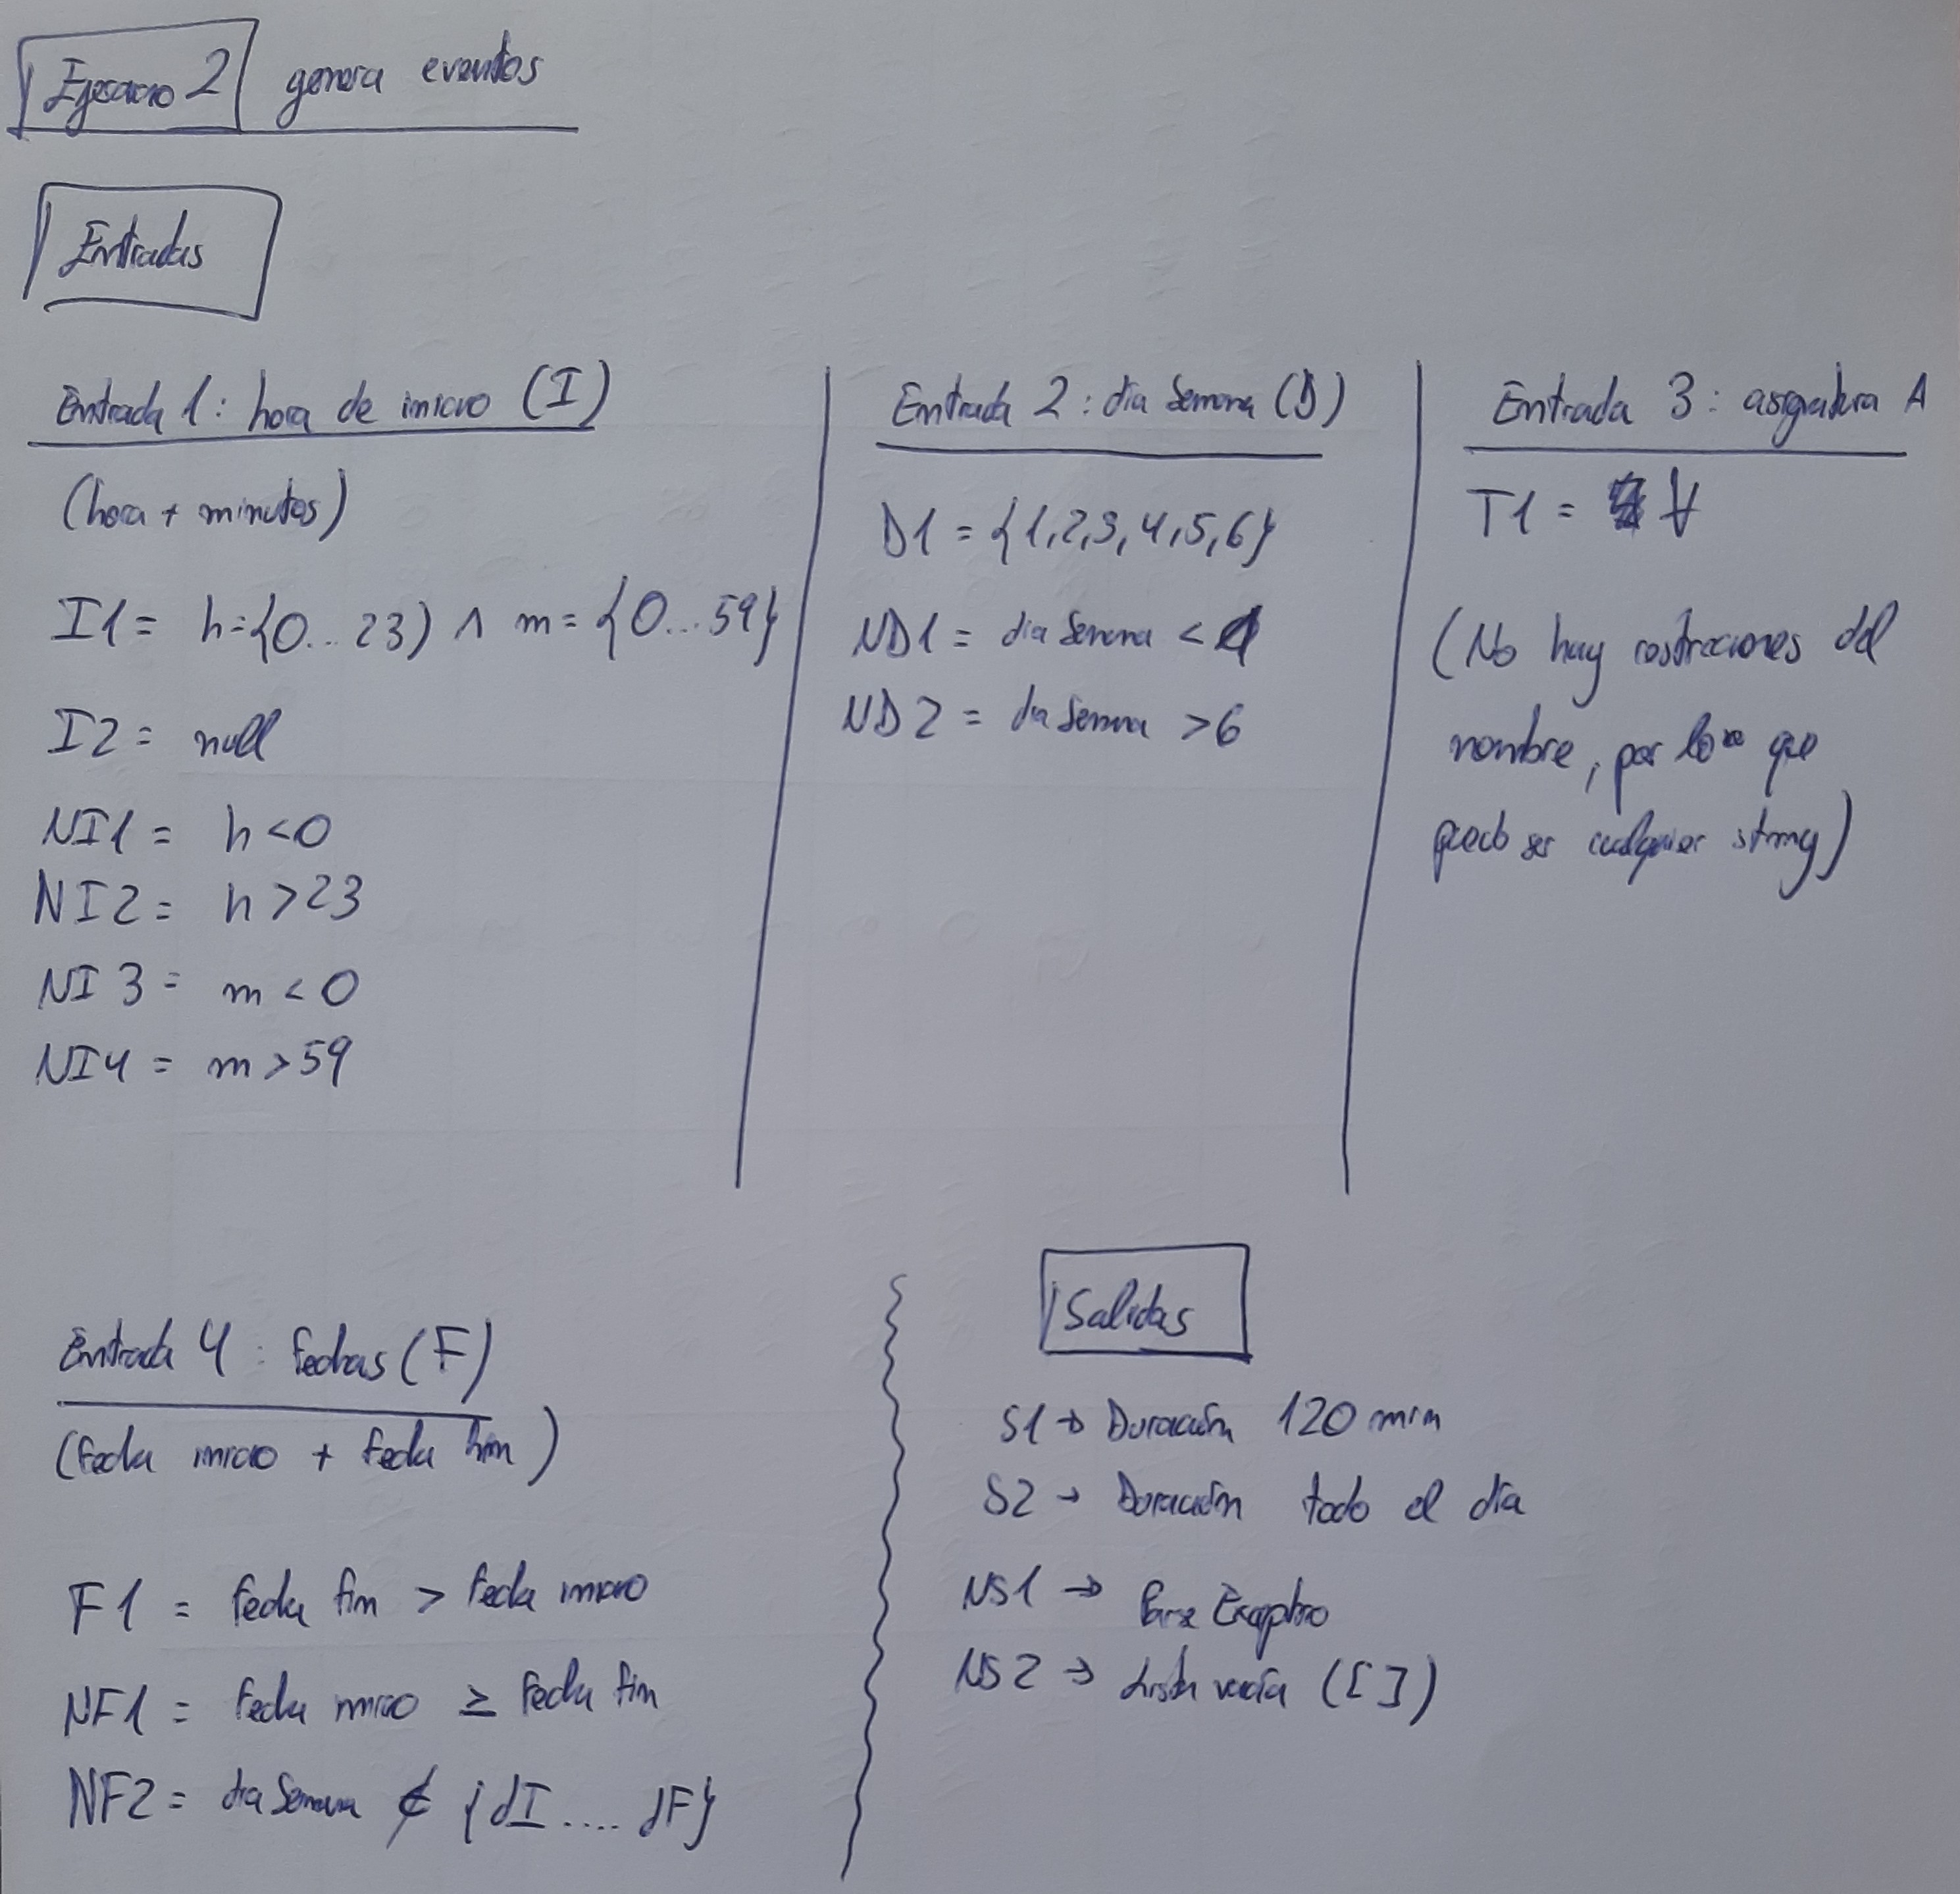 Ejercicio 2 genera eventos
Entradas
Entrada 1: hora de inicio (I)
(hora + minutos)
I1 = h={0...23) ∧ m={0...59}
I2 = null
NI1 = h<0
NI2 = h>23
NI3 = m<0
NI4 = m>59
Entrada 2: dia Semana (D)
D1 = {1,2,3,4,5,6}
ND1 = dia Semana <1
ND2 = dia Semana >6
Entrada 3: asignatura A
T1 = ∀
(No hay restricciones del
nombre, por lo que
puede ser cualquier string)
Entrada 4: fechas (F)
(fecha inicio + fecha fin)
F1 = fecha fin > fecha inicio
NF1 = fecha inicio ≥ fecha fin
NF2 = dia Semana ∉ {dI.... dF}
Salidas
S1 → Duración 120 min
S2 → Duración todo el día
NS1 → Parse Exception
NS2 → Lista vacía ([ ])